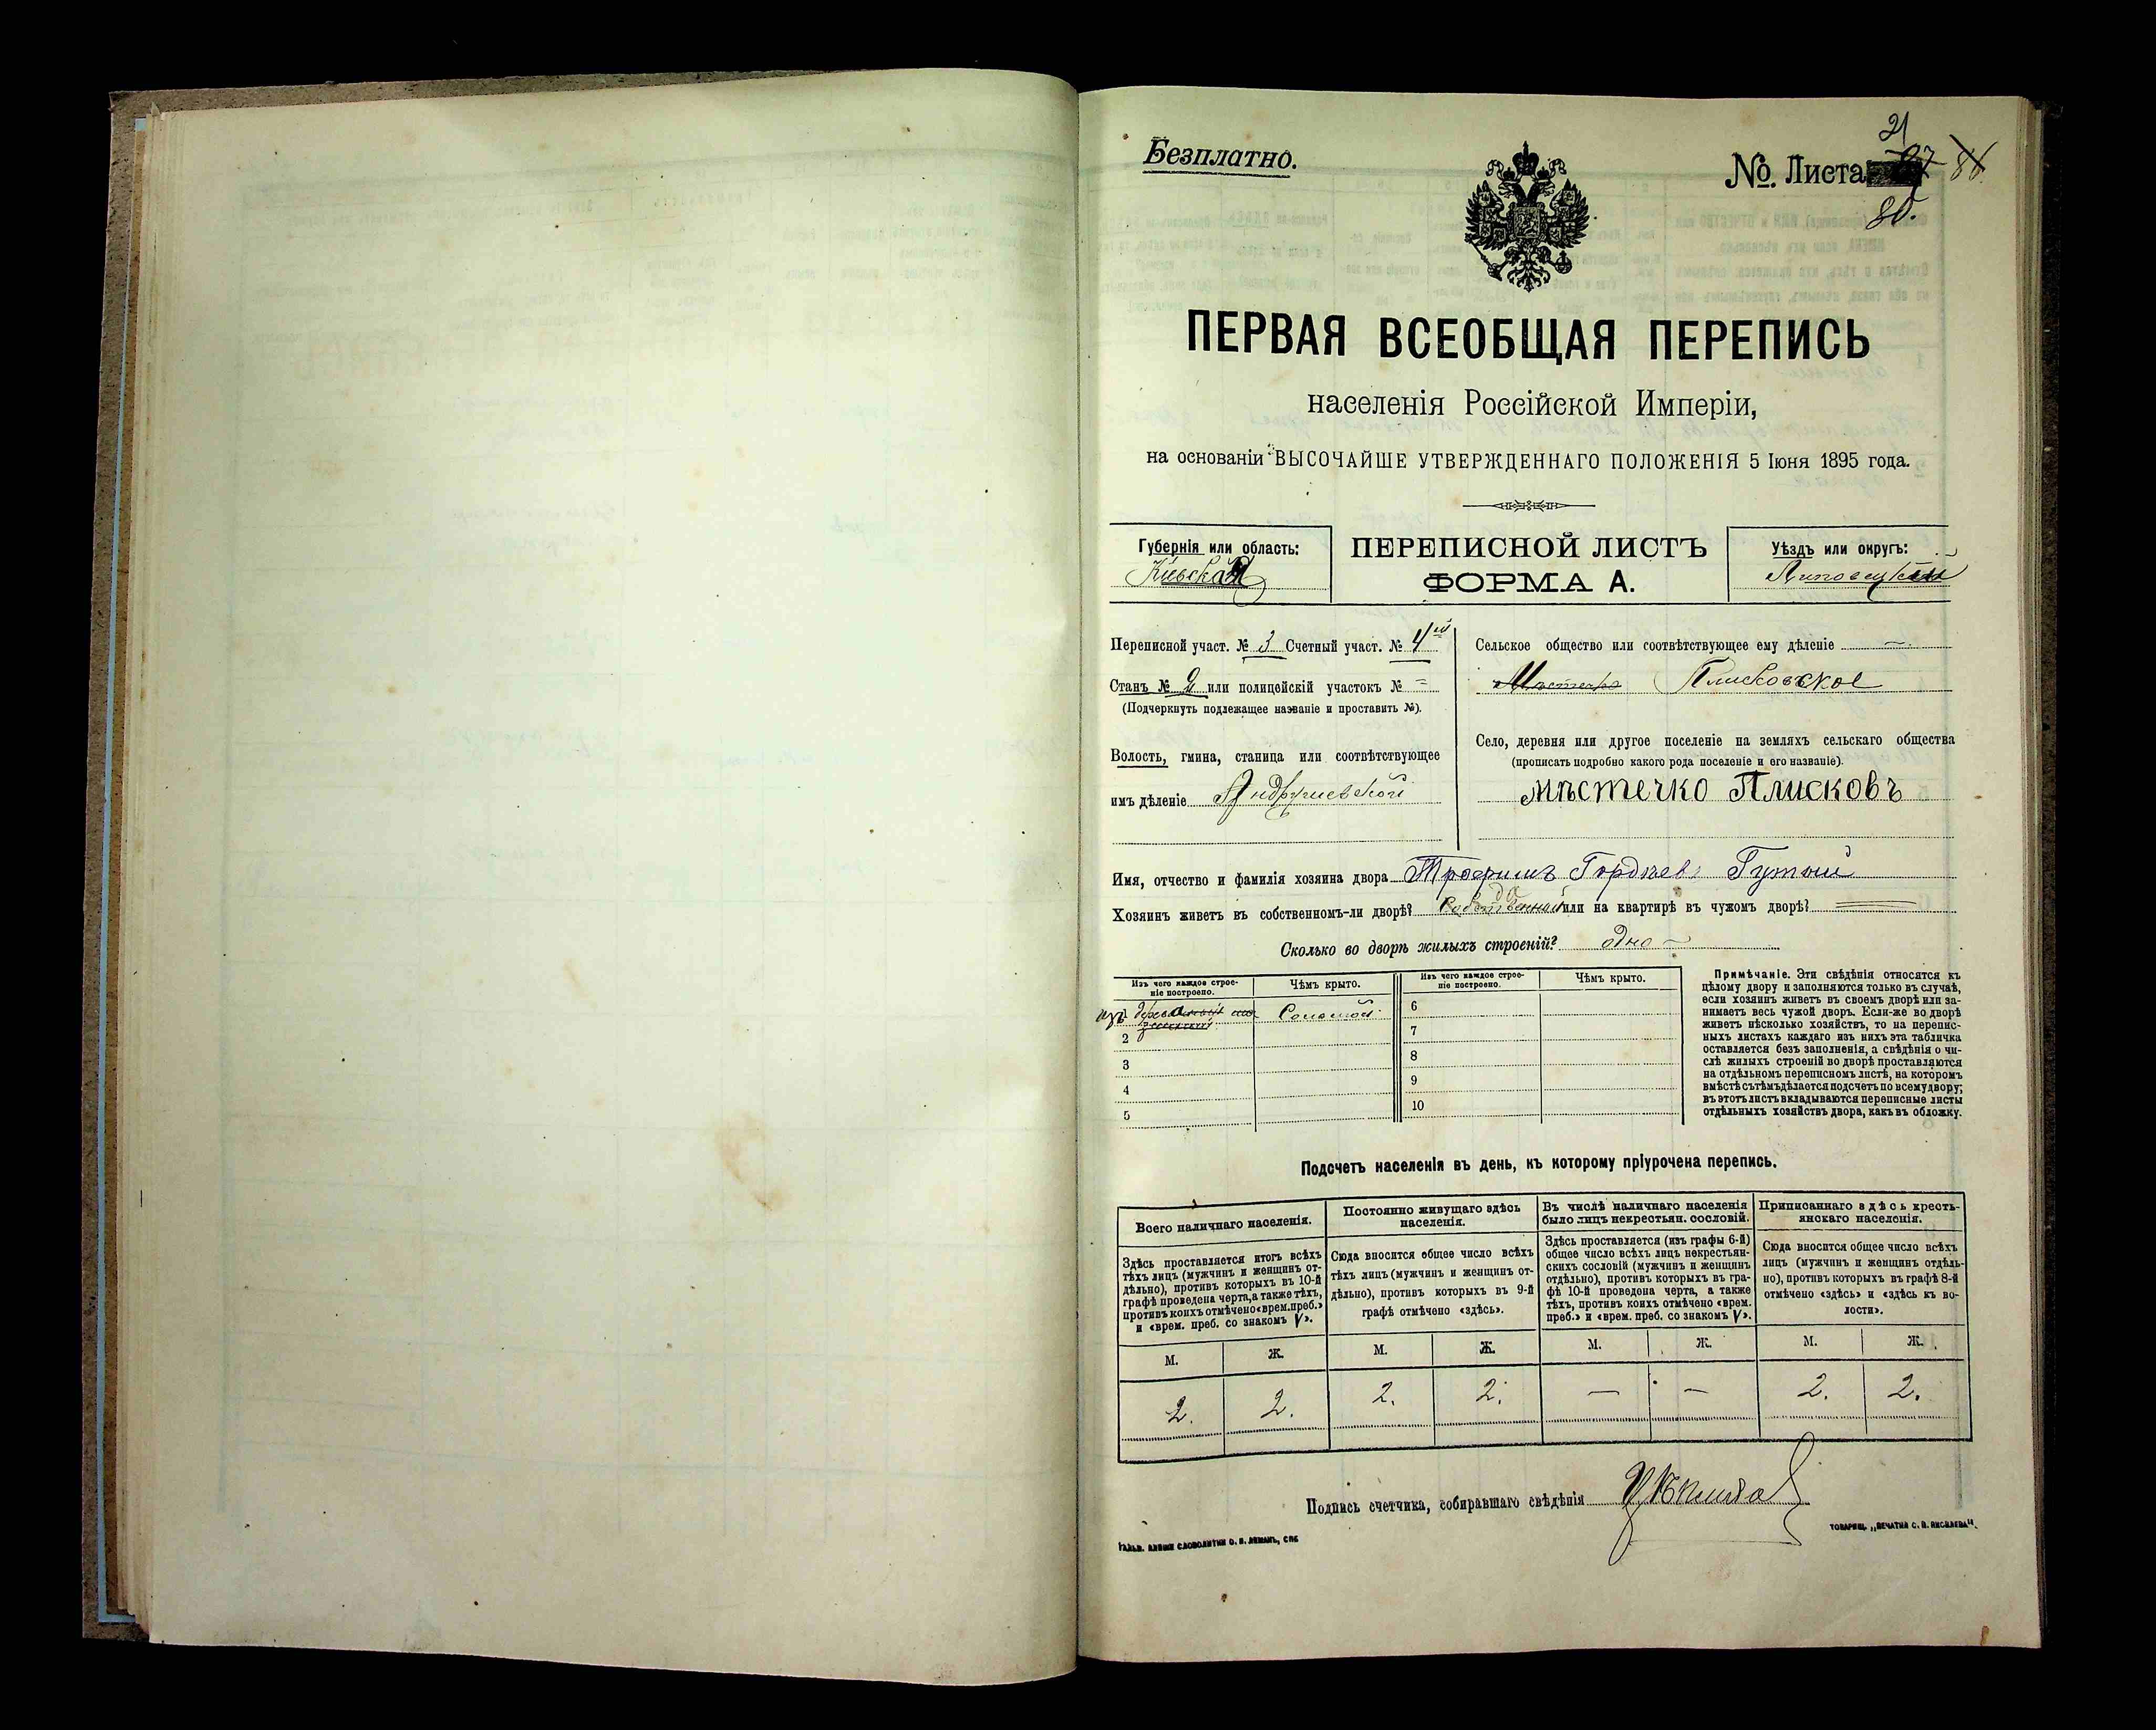 21
Безплатно.
№. Листа 87 88
80.
ПЕРВАЯ ВСЕОБЩАЯ ПЕРЕПИСЬ
населенія Россійской Имперіи,
на основаніи ВЫСОЧАЙШЕ УТВЕРЖДЕННАГО ПОЛОЖЕНІЯ 5 Іюня 1895 года.
Губернія или область:
Кіевская
ПЕРЕПИСНОЙ ЛИСТЪ
ФОРМА А.
Уѣздъ или округъ:
Липовецкій
Переписной участ. № 3 Счетный участ. № 4ый
Станъ № 2 или полицейскій участокъ № =
(Подчеркнуть подлежащее названіе и проставить №).
Волость, гмина, станица или соотвѣтствующее
имъ дѣленіе Андрушевской
Сельское общество или соотвѣтствующее ему дѣленіе —
Мѣстечко Плисковское
Село, деревня или другое поселеніе на земляхъ сельскаго общества
(прописать подробно какого рода поселеніе и его названіе).
мѣстечко Плисковъ
Имя, отчество и фамилія хозяина двора Трофимъ Гордѣевъ
Хозяинъ живетъ въ собственномъ-ли дворѣ? или на квартирѣ въ чужомъ дворѣ?
Сколько во дворѣ жилыхъ строеній? одно —
Изъ чего каждое строе-
ніе построено.
Чѣмъ крыто.
Изъ чего каждое строе-
ніе построено.
Чѣмъ крыто.
изъ Соломой
2
3
4
5
6
7
8
9
10
Примѣчаніе. Эти свѣдѣнія относятся къ
цѣлому двору и заполняются только въ случаѣ,
если хозяинъ живетъ въ своемъ дворѣ или за-
нимаетъ весь чужой дворъ. Если-же во дворѣ
живетъ нѣсколько хозяйствъ, то на перепис-
ныхъ листахъ каждаго изъ нихъ эта табличка
оставляется безъ заполненія, а свѣдѣнія о чи-
слѣ жилыхъ строеній во дворѣ проставляются
на отдѣльномъ переписномъ листѣ, на которомъ
вмѣстѣ съ тѣмъ дѣлается подсчетъ по всему двору;
въ этотъ листъ вкладываются переписные листы
отдѣльныхъ хозяйствъ двора, какъ въ обложку.
Подсчетъ населенія въ день, къ которому пріурочена перепись.
Всего наличнаго населенія.
Здѣсь проставляется итогъ всѣхъ
тѣхъ лицъ (мужчинъ и женщинъ от-
дѣльно), противъ которыхъ въ 10-й
графѣ проведена черта, а также тѣхъ,
противъ коихъ отмѣчено «врем. преб.»
и «врем. преб. со знакомъ V».
Постоянно живущаго здѣсь
населенія.
Сюда вносится общее число всѣхъ
тѣхъ лицъ (мужчинъ и женщинъ от-
дѣльно), противъ которыхъ въ 9-й
графѣ отмѣчено «здѣсь».
Въ числѣ наличнаго населенія
было лицъ некрестьян. сословій.
Здѣсь проставляется (изъ графы 6-й)
общее число всѣхъ лицъ некрестьян-
скихъ сословій (мужчинъ и женщинъ
отдѣльно), противъ которыхъ въ гра-
фѣ 10-й проведена черта, а также
тѣхъ, противъ коихъ отмѣчено «врем.
преб.» и «врем. преб. со знакомъ V».
Приписаннаго здѣсь кресть-
янскаго населенія.
Сюда вносится общее число всѣхъ
лицъ (мужчинъ и женщинъ отдѣль-
но), противъ которыхъ въ графѣ 8-й
отмѣчено «здѣсь» и «здѣсь къ во-
лости».
М. Ж. М. Ж. М. Ж. М. Ж.
2. 2. 2. 2. — — 2. 2.
Подпись счетчика, собиравшаго свѣдѣнія
Гальв. клише словолитни О. И. Леманъ, СПБ
Товарищ. „Печатня С. П. Яковлева".